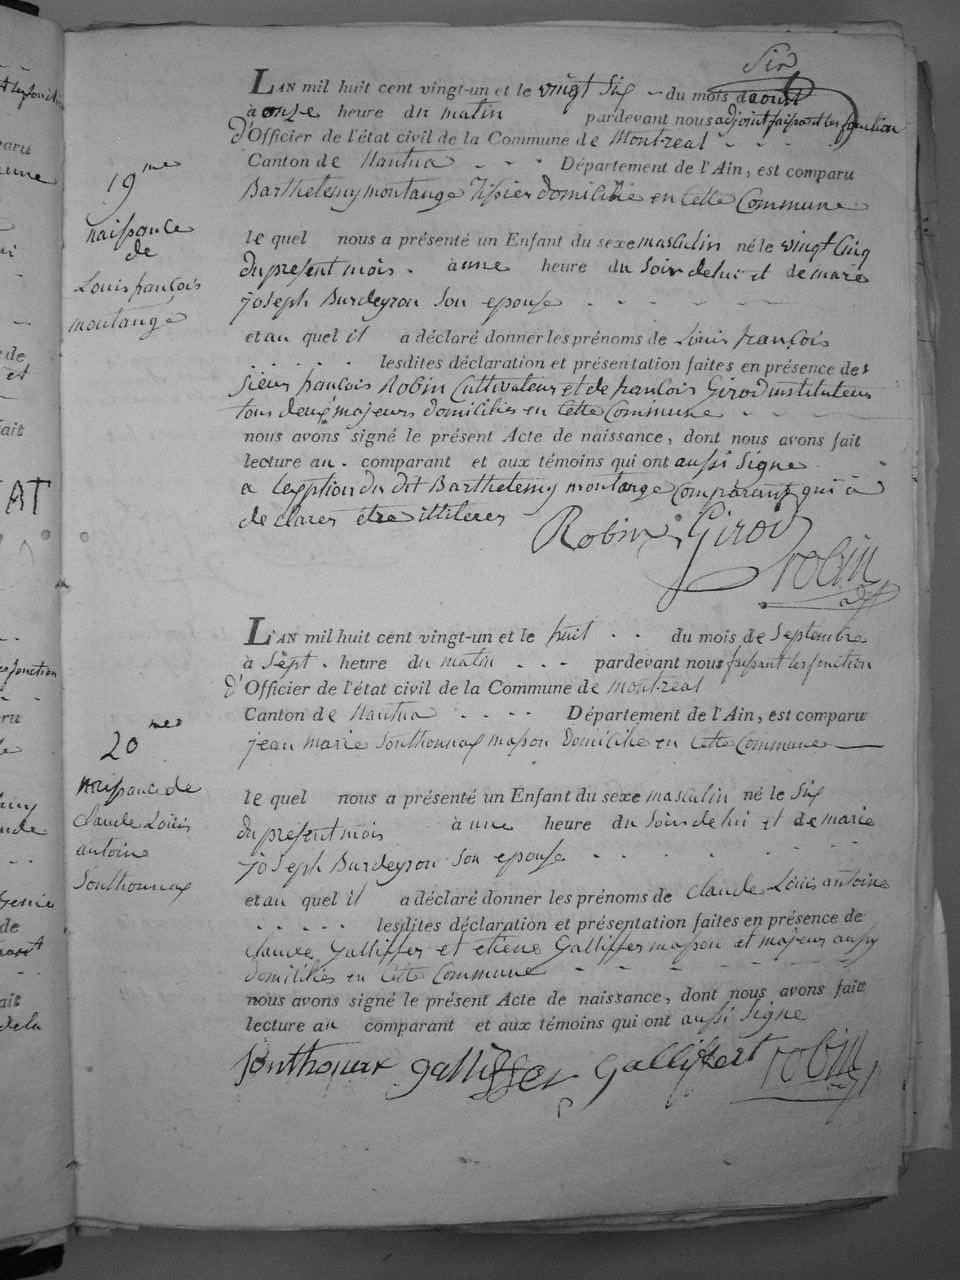 L'AN mil huit cent vingt-un et le vingt Six du mois d'aoust
à onze heure du matin pardevant nous adjoint faisant les fonction
d'Officier de l'état civil de la Commune de Montreal
Canton de Nantua Département de l'Ain, est comparu
Barthelemy montange Tissier domicilié en Cette Commune
19me
naissance
de
Louis françois
montange
le quel nous a présenté un Enfant du sexe masculin né le vingt Cinq
du present mois. à une heure du Soir de lui et de marie
joseph Burdeyron Son epouse
et au quel il a déclaré donner les prénoms de Louis françois
lesdites déclaration et présentation faites en présence des
Sieur françois Robin Cultivateur et de françois Girod instituteur
tous deux majeurs domiciliés en Cette Commune
nous avons signé le présent Acte de naissance, dont nous avons fait
lecture au comparant et aux témoins qui ont aussi Signe
a l'exption du dit Barthelemy montange Comparant qui à
declarer être illiteres
Robin Girod
robin
adjt
L'AN mil huit cent vingt-un et le huit du mois de Septembre
à Sept heure du matin pardevant nous faisant les fonction
d'Officier de l'état civil de la Commune de Montreal
Canton de Nantua Département de l'Ain, est comparu
jean marie Southonnax masson domicilié en Cette Commune
20me
naissance de
claude Louis
antoine
Southonnax
le quel nous a présenté un Enfant du sexe masculin né le Six
du présent mois à une heure du Soir de lui et de marie
joseph Burdeyron Son epouse
et au quel il a déclaré donner les prénoms de claude Louis antoine
lesdites déclaration et présentation faites en présence de
claude Galliffer et etiene Galliffer masson et majeur aussy
domiciliés en Cette Commune
nous avons signé le présent Acte de naissance, dont nous avons fait
lecture au comparant et aux témoins qui ont aussi Signe
Southonax galliffer Galliffert robin